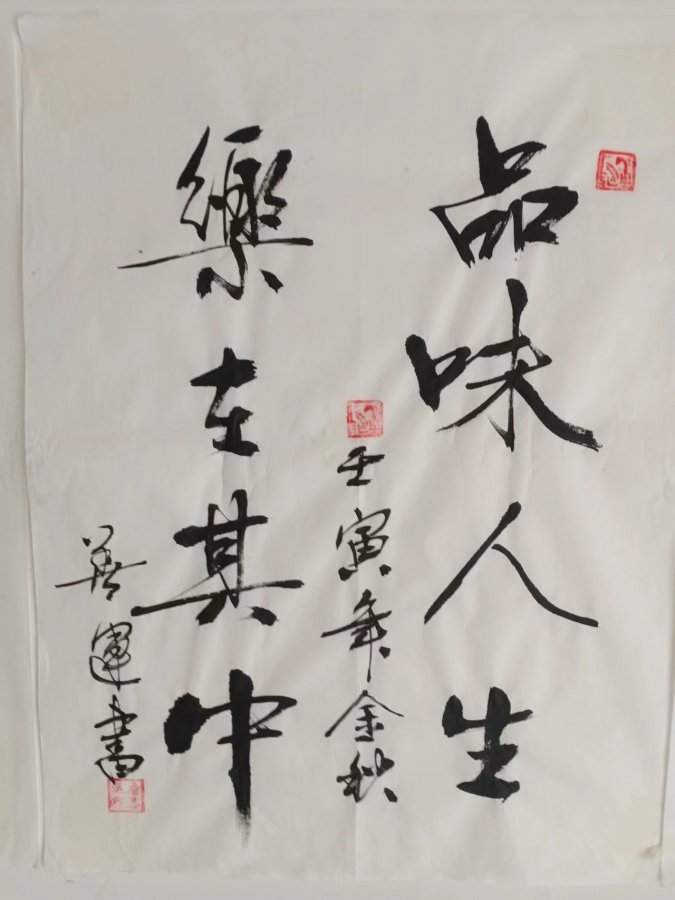 品味人生
壬寅年金秋
樂在其中
善運書